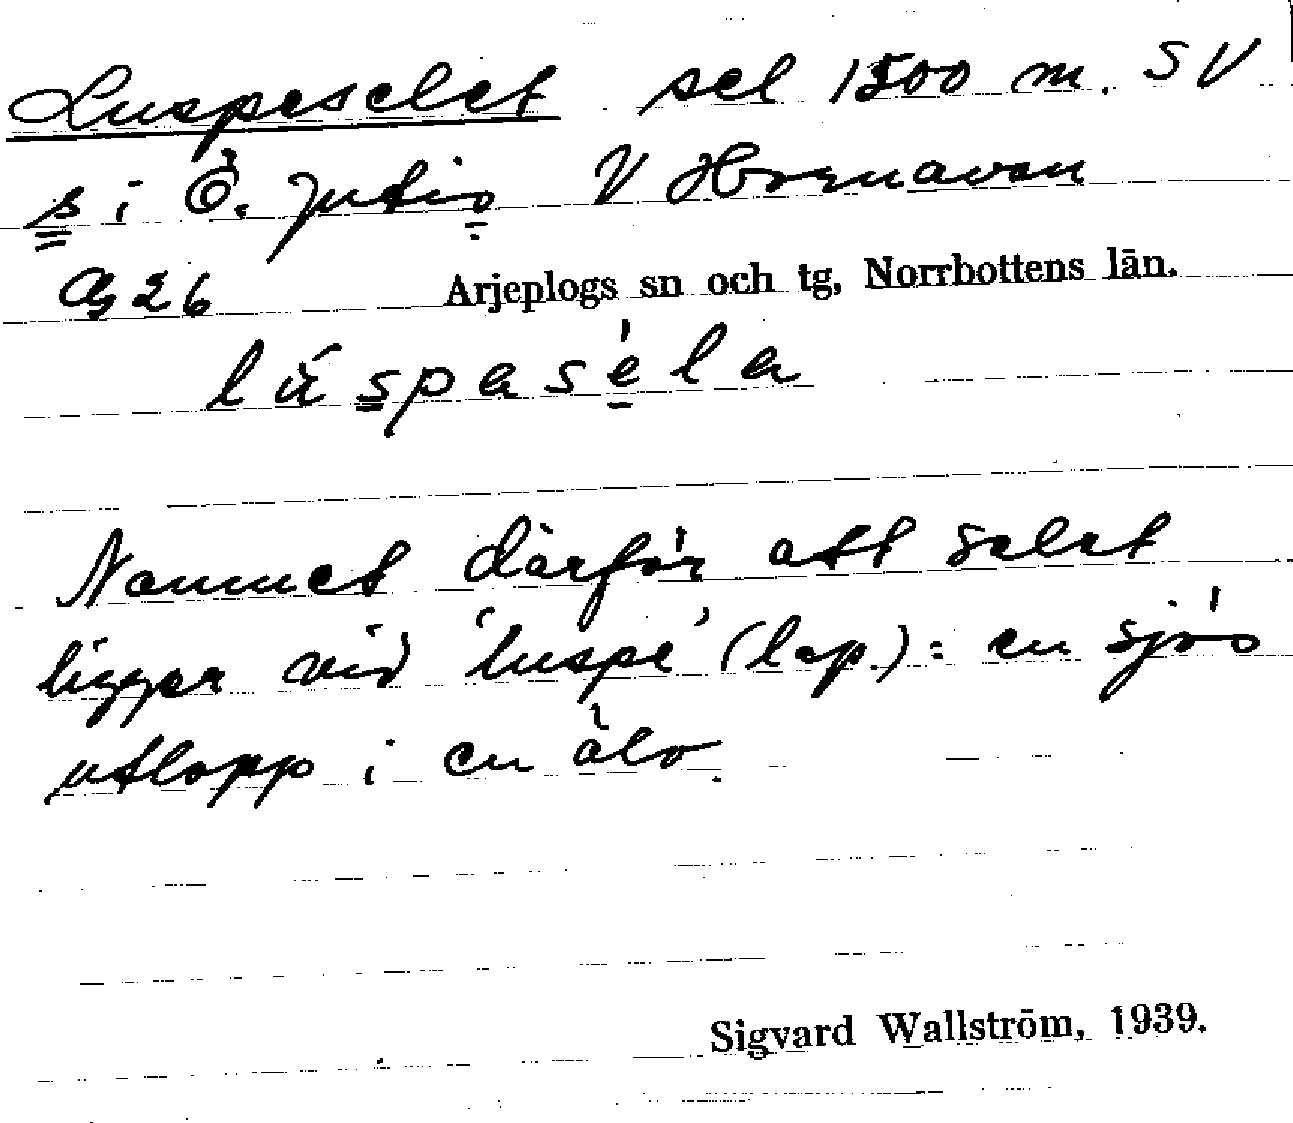 Luspeselet sel 1500 m. SV
s i Ö. Jutis V Hornavan
G 26 Arjeplogs sn och tg, Norrbottens län.
lúspaséla
Namnet därför att selet
ligger vid 'luspe' (lap.): en sjös
utlopp i en älv.
Sigvard Wallström, 1939.